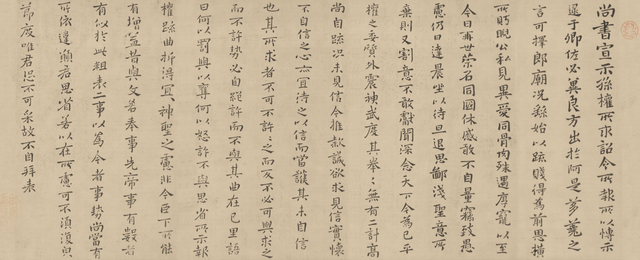 尚書宣示孫權所求詔令所報所以博示
逮于卿佐必冀良方出於阿是芻蕘之
言可擇郎廟況繇始以疏賤得為前恩橫
所盼睨公私見異愛同骨肉殊遇厚寵以至
今日再世榮名同國休慼敢不自量竊致愚
慮仍日達晨坐以待旦退思鄙淺聖意所
棄則又割意不敢獻聞深念天下今為已平
權之委質外震神武度其拳〻無有二計高
尚自疏況未見信今推款誠欲求見信實懷
不自信之心亦宜待之以信而當護其未自信
也其所求者不可不許〻之而反不必可與求之
而不許勢必自絕許而不與其曲在己里語
曰何以罰與以奪何以怒許不與思省所示報
權疏曲折得宜〻神聖之慮非今臣下所能
有增益昔與文若奉事先帝事有數者
有似於此粗表二事以為今者事勢尚當有
所依違願君思省若以在所慮可不須復貌
節度唯君恐不可采故不自拜表